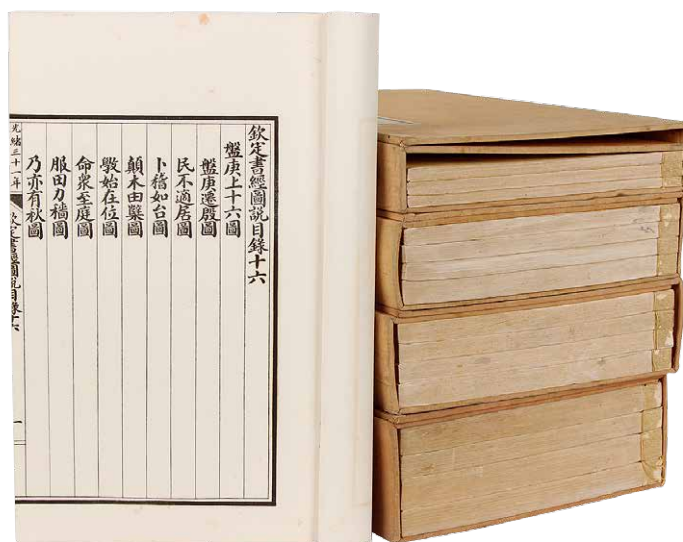 欽定書經圖說目錄十六
盤庚上十六圖
盤庚遷殷圖
民不適居圖
卜稽如台圖
顛木由櫱圖
斆始在位圖
命衆至庭圖
服田力穡圖
乃亦有秋圖
光緒三十一年
欽定書經圖說目錄十六
一